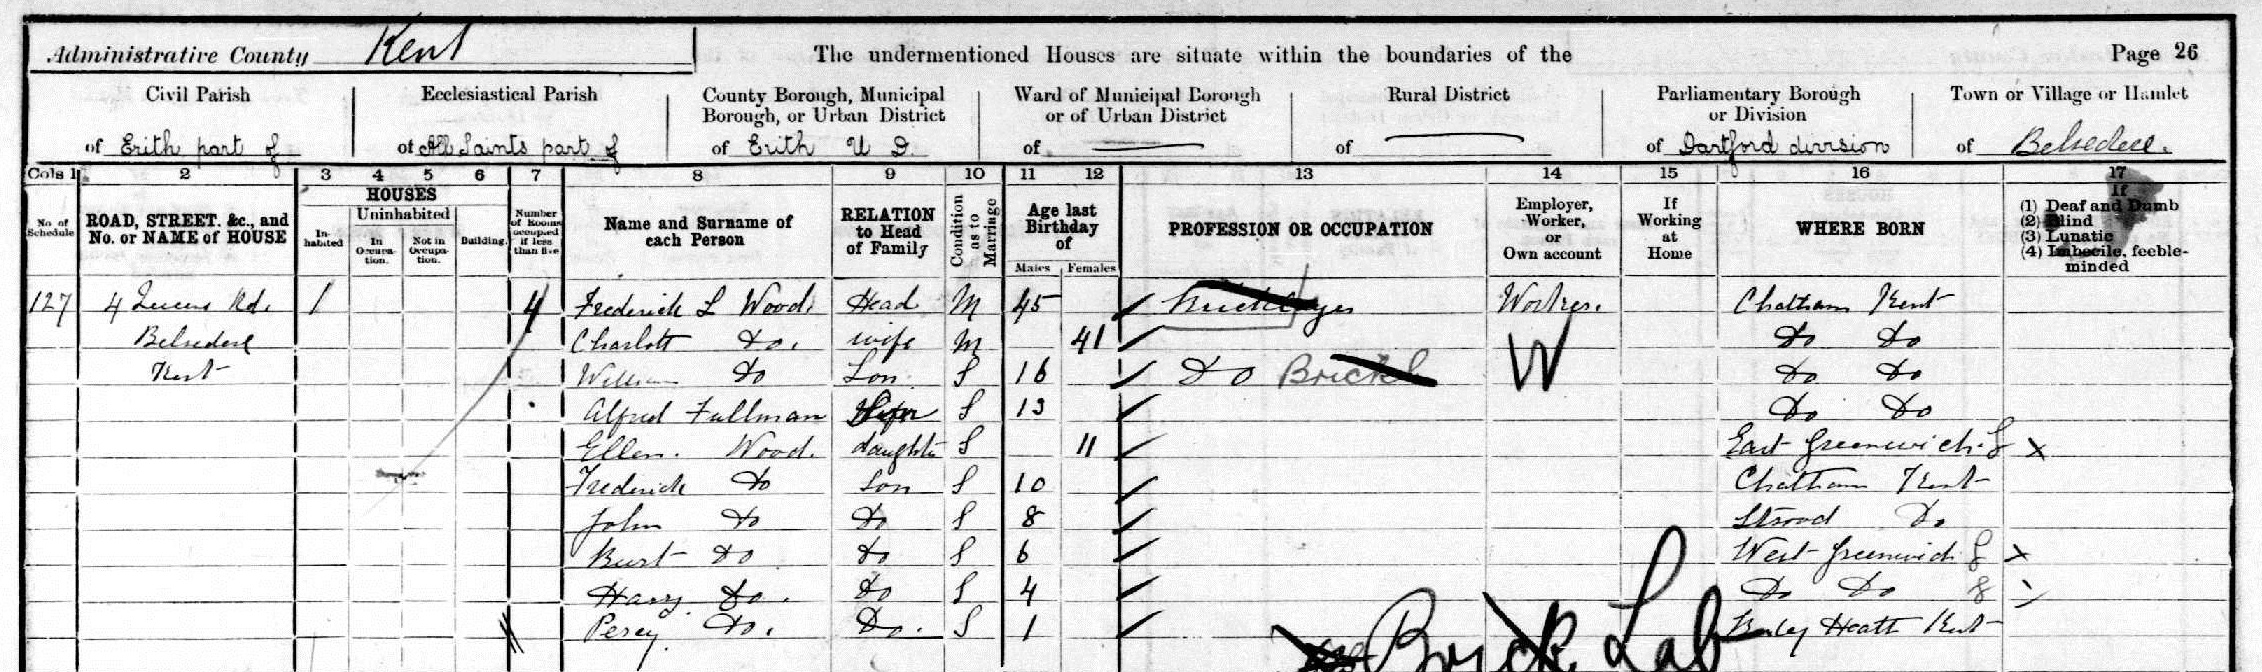 Administrative County Kent The undermentioned Houses are situate within the boundaries of the Page 26
Civil Parish Ecclesiastical Parish County Borough, Municipal Borough, or Urban District Ward of Municipal Borough or of Urban District Rural District Parliamentary Borough or Division Town or Village or Hamlet
of Erith part of of All Saints part of of Erith U D. of of of Dartford division of Belvedere.
Cols 1 2 3 4 5 6 7 8 9 10 11 12 13 14 15 16 17
No. of Schedule ROAD, STREET, &c., and No. or NAME of HOUSE HOUSES Inhabited Uninhabited In Occupation. Not in Occupation. Building. Number of Rooms occupied if less than five Name and Surname of each Person RELATION to Head of Family Condition as to Marriage Age last Birthday of Males Females PROFESSION OR OCCUPATION Employer, Worker, or Own account If Working at Home WHERE BORN If (1) Deaf and Dumb (2) Blind (3) Lunatic (4) Imbecile, feeble-minded
127 4 Rd. 1 4 Frederick L Wood. Head M 45 Worker. Chatham Kent
Belvedere Charlott Do. wife M 41 Do Do
Kent William Do Son S 16 Do Brick W Do Do
Alfred Fullman S 13 Do Do
Ellen. Wood. daughter S 11 East Greenwich. x
Frederick Do Son S 10 Chatham Kent
John Do Do S 8 Strood Do
Burt Do Do S 6 West Greenwich x
Harry Do. Do S 4 Do Do
Percy Do. Do. S 1 Bexley Heath Kent
Brick Lab